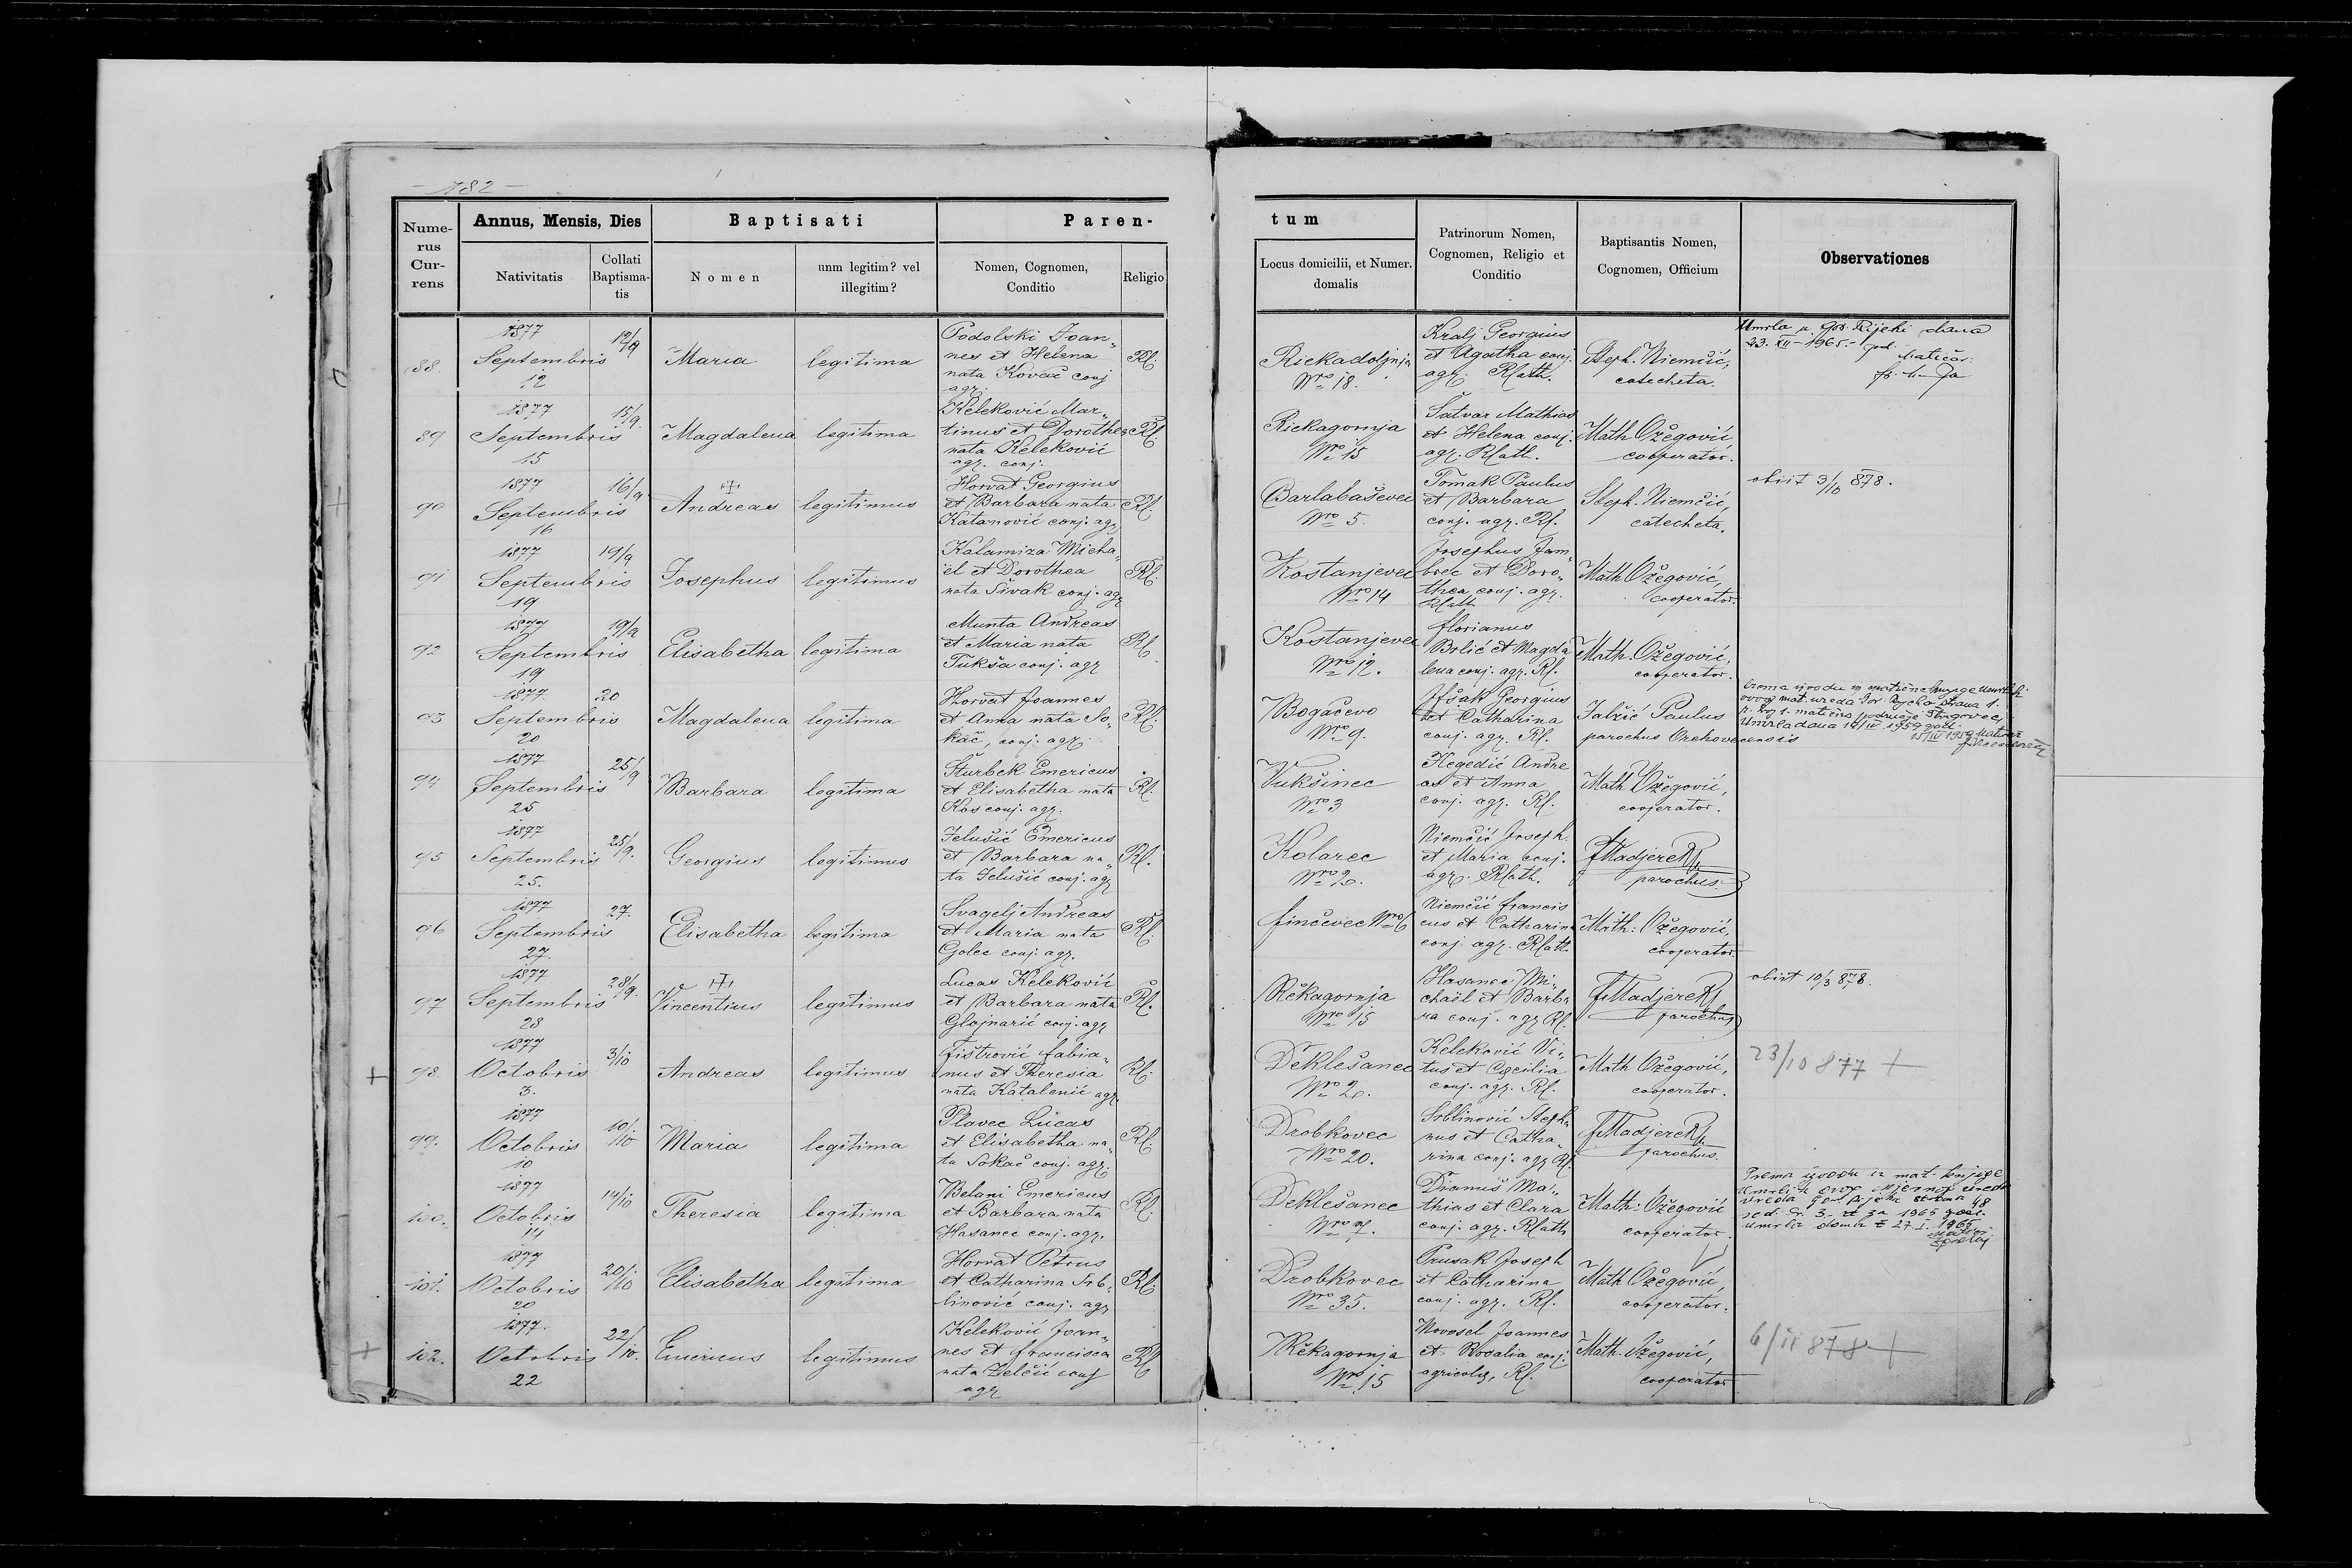 - 182 -
Nume-
rus
Cur-
rens
Annus, Mensis, Dies
Nativitatis
Collati
Baptisma-
tis
Baptisati
Nomen
unm legitim? vel
illegitim?
Paren-
Nomen, Cognomen,
Conditio
Religio
tum
Locus domicilii, et Numer.
domalis
Patrinorum Nomen,
Cognomen, Religio et
Conditio
Baptisantis Nomen,
Cognomen, Officium
Observationes
88.
1877
Septembris
12
12/9
Maria
legitima
Podolski Joan„
nes et Helena
nata Kovač conj
agr.
Rl.
Riekadoljnja
Nro 18.
Kralj Georgius
et Agatha conj.
agr. Rlath.
Steph. Niemčić,
catecheta.
Umrla u Gor. Rijeki dana
23. XII - 1965.- god.
Matičar:
89
1877
Septembris
15
15/9.
Magdalena
legitima
Keleković Mar„
tinus et Dorothea
nata Keleković
agr. conj.
Rl.
Riekagornja
Nro 15
Šatvar Mathias
et Helena conj.
agr. Rlath.
Math Ožegović
cooperator.
90
1877
Septembris
16
16/9.
Andreas
legitimus
Horvat Georgius
et Barbara nata
Katanović conj. agr.
Rl.
Barlabaševec
Nro 5.
Tomak Paulus
et Barbara
conj. agr. Rl.
Steph. Niemčić,
catecheta.
obiit 3/10 878.
91
1877
Septembris
19
19/9
Josephus
legitimus
Kalamiza Micha„
el et Dorothea
nata Sivak conj. agr
Rl.
Kostanjevec
Nro 14
Josephus Jam„
brec et Doro„
thea conj. agr.
Rlath
Math Ožegović,
cooperator.
92
1877
Septembris
19
19/9
Elisabetha
legitima
Munta Andreas
et Maria nata
Tukša conj. agr
Rl.
Kostanjevec
Nro 12.
Florianus
Brlić et Magda
lena conj. agr. Rl.
Math. Ožegović,
cooperator.
93
1877
Septembris
20
20
Magdalena
legitima
Horvat Joannes
et Anna nata So„
kač, conj. agr.
Rl.
Bogačevo
Nro 9.
Ifšak Georgius
et Catharina
conj. agr. Rl.
Jalžić Paulus
parochus Orehovecensis
Umrla dana 14/IV 1959 god.
94
1877
Septembris
25
25/9
Barbara
legitima
Šturbek Emericus
et Elisabetha nata
Kos conj. agr.
Rl.
Vukšinec
Nro 3
Hegedić Andre
as et Anna
conj. agr. Rl.
Math Ožegović,
cooperator.
95
1877
Septembris
25.
25/9.
Georgius
legitimus
Jelušić Emericus
et Barbara na„
ta Jelušić conj. agr
Rl.
Kolarec
Nro 2.
Niemčić Joseph
et Maria conj.
agr. Rlath.
parochus.
96
1877
Septembris
27.
27.
Elisabetha
legitima
Svagelj Andreas
et Maria nata
Golec conj. agr.
Rl.
Finčevec Nro 6
Niemčić Francis
cus et Catharina
conj. agr. Rlath
Math: Ožegović,
cooperator
97
1877
Septembris
28
28/9.
Vincentius
legitimus
Lucas Keleković
et Barbara nata
Glojnarić conj. agr
Rl.
Rěkagornja
Nro 15
Hasanec Mi„
chaël et Barba
ra conj. agr Rl.
parochus
obiit 10/3 878.
98
1877
Octobris
3.
3/10
Andreas
legitimus
Fištrović Fabia„
nus et Theresia
nata Katalenić agr.
Rl.
Deklešanec
Nro 2.
Keleković Vi„
tus et Cæcilia
conj. agr. Rl.
Math Ožegović,
cooperator.
23/10 877 +
99.
1877
Octobris
10
10/10
Maria
legitima
Plavec Lucas
et Elisabetha na„
ta Sokač conj. agr.
Rl.
Drobkovec
Nro 20.
Srblinović Stepha
nus et Catha„
rina conj. agr Rl.
parochus.
100.
1877
Octobris
14
14/10
Theresia
legitima
Belani Emericus
et Barbara nata
Hasanec conj. agr.
Rl.
Deklešanec
Nro 7.
Dianiš Ma„
thias et Clara
conj. agr. Rlath
Math: Ožegović
cooperator.
Prema izvodu iz mat. knjige
umrlih ovog mjesnog ureda
red. br. 3. za 1965 god.
umrla dana 27. I. 1965
101.
1877
Octobris
20
20/10
Elisabetha
legitima
Horvat Petrus
et Catharina Srb„
linović conj. agr
Rl.
Drobkovec
Nro 35.
Prusak Joseph
et Catharina
conj. agr. Rl.
Math Ožegović,
cooperator.
102.
1877.
Octobris
22
22/10.
Emericus
legitimus
Keleković Joan„
nes et Francisca
nata Zelčić conj
agr
Rl
Rěkagornja
Nro 15
Novosel Joannes
et Rosalia conj.
agricolæ, Rl.
Math. Ožegović,
cooperator
6/II 878 +